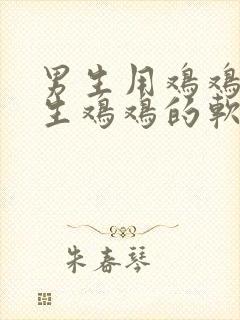 男生用鸡鸡
生鸡鸡的軟
朱春琴